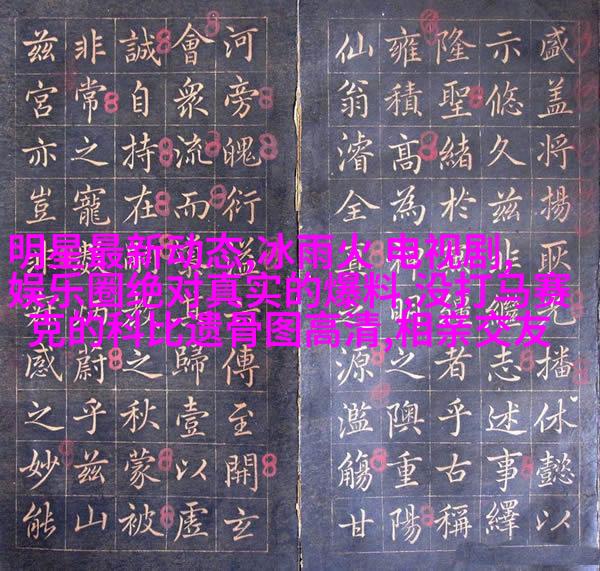 明星最新动态,冰雨火 电视剧,
娱乐圈绝对真实的爆料,没打马赛
克的科比遗骨图高清,相亲交友
盛盖将揚耿光播休懿以
示悠久兹非繼志述事繹
隆聖緒於無疆者乎古稱
雍積高為神明之隩重陽
仙翁濬全真之源濫觴甘
河旁魄衍溢傳至開玄
會衆流而歸壹以虛
誠自持在教之秋蒙被
非常之寵數蔚乎兹山
兹宮亦豈感之妙能